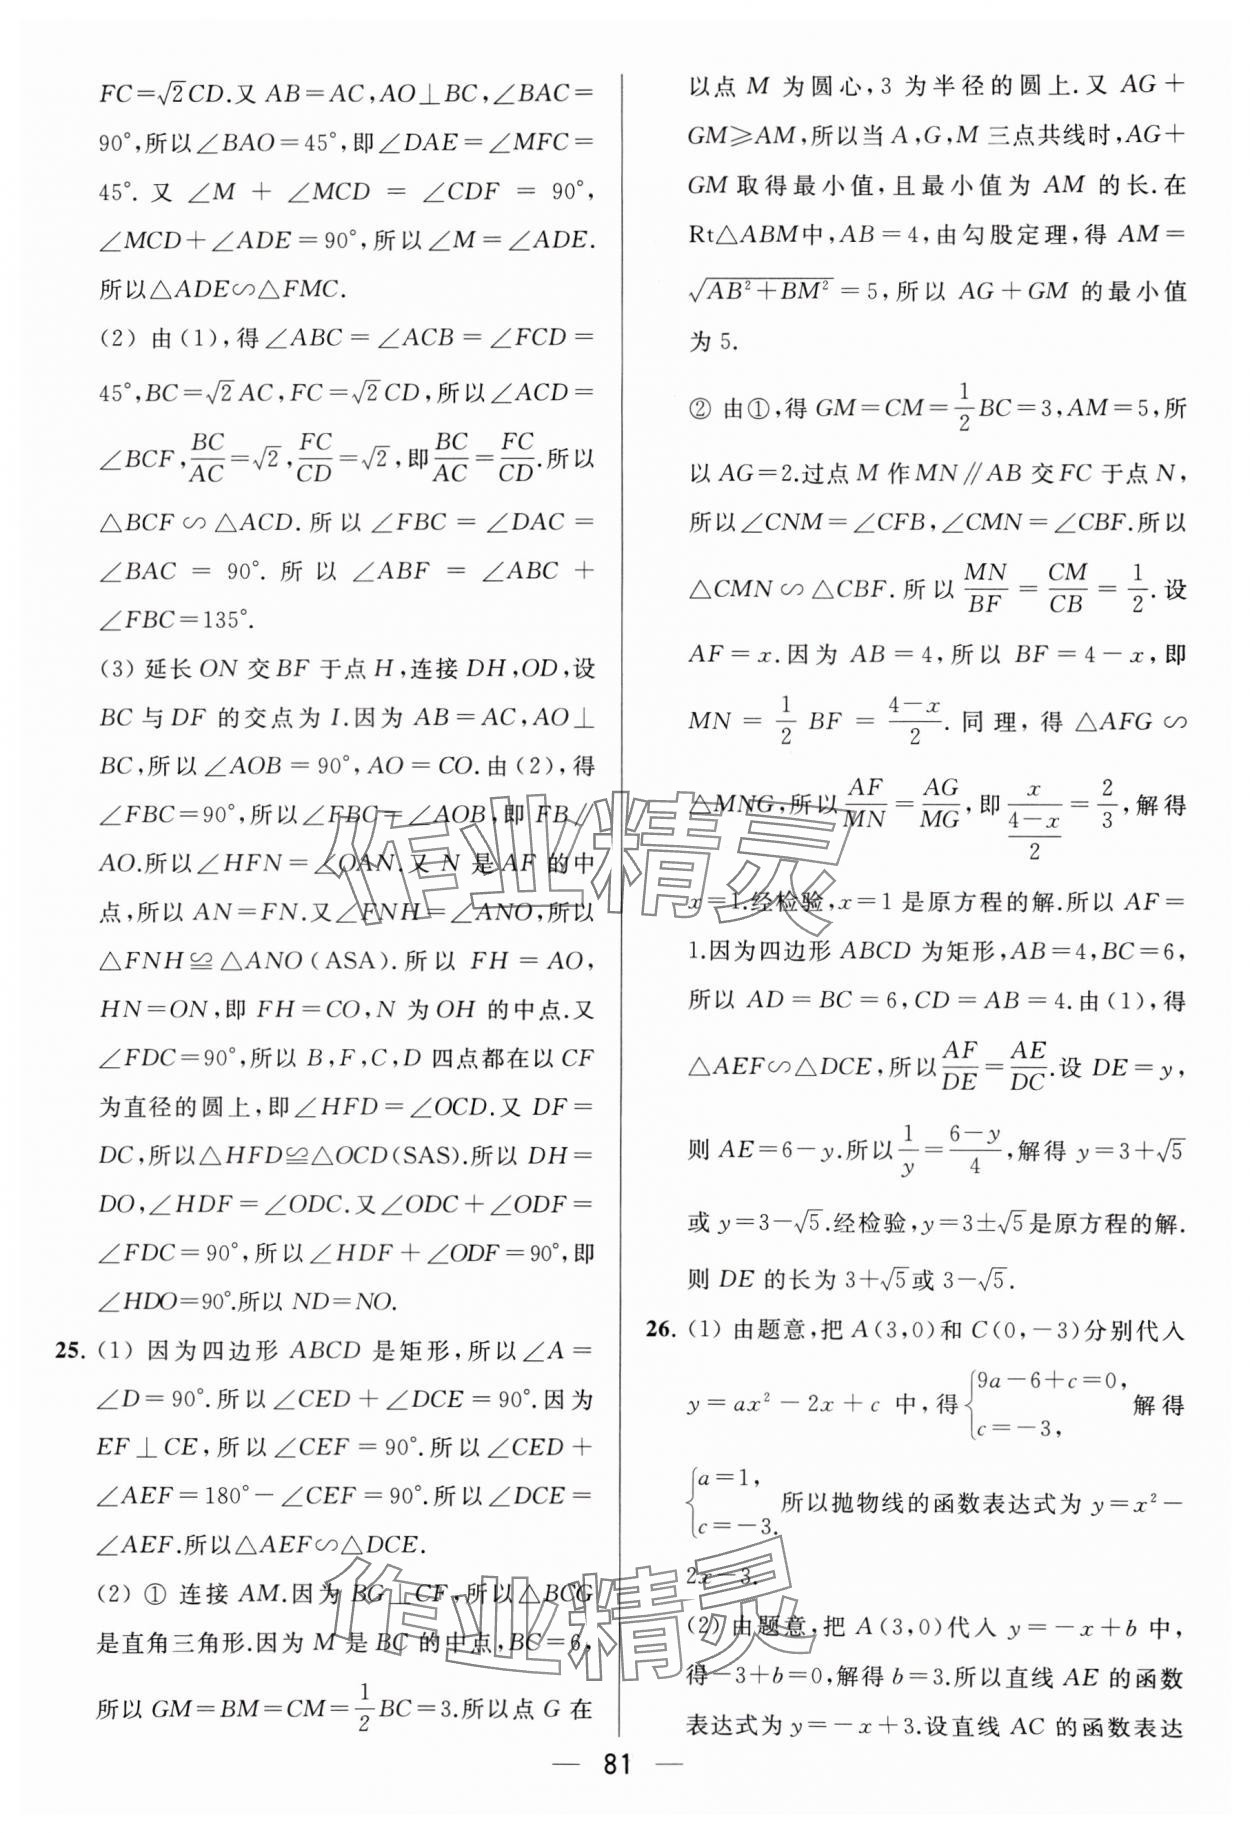 FC=√2CD.又 AB=AC,AO⊥BC,∠BAC=
90°,所以∠BAO=45°,即∠DAE=∠MFC=
45°. 又 ∠M + ∠MCD = ∠CDF = 90°,
∠MCD+∠ADE=90°,所以∠M=∠ADE.
所以△ADE∽△FMC.
(2) 由(1),得∠ABC=∠ACB=∠FCD=
45°,BC=√2AC,FC=√2CD,所以∠ACD=
∠BCF,BC/AC=√2,FC/CD=√2,即BC/AC=FC/CD.所以
△BCF∽△ACD.所以∠FBC=∠DAC=
∠BAC = 90°. 所以 ∠ABF = ∠ABC +
∠FBC=135°.
(3) 延长ON 交BF 于点H,连接DH,OD,设
BC与DF 的交点为I.因为 AB=AC,AO⊥
BC,所以∠AOB=90°,AO=CO.由(2),得
∠FBC=90°,所以∠FBC=∠AOB,即 FB∥
AO.所以∠HFN=∠OAN.又 N 是AF 的中
点,所以 AN=FN.又∠FNH=∠ANO,所以
△FNH≌△ANO(ASA).所以 FH=AO,
HN=ON,即 FH=CO,N 为OH 的中点.又
∠FDC=90°,所以 B,F,C,D 四点都在以CF
为直径的圆上,即∠HFD=∠OCD.又 DF=
DC,所以△HFD≌△OCD(SAS).所以 DH=
DO,∠HDF=∠ODC.又∠ODC+∠ODF=
∠FDC=90°,所以∠HDF+∠ODF=90°,即
∠HDO=90°.所以 ND=NO.
25. (1) 因为四边形 ABCD 是矩形,所以∠A=
∠D=90°.所以∠CED+∠DCE=90°.因为
EF⊥CE,所以∠CEF=90°.所以∠CED+
∠AEF=180°-∠CEF=90°.所以∠DCE=
∠AEF.所以△AEF∽△DCE.
(2) ① 连接 AM.因为 BG⊥CF,所以△BCG
是直角三角形.因为 M 是 BC 的中点,BC=6,
所以 GM=BM=CM=1/2BC=3.所以点 G 在
以点 M 为圆心,3 为半径的圆上.又 AG+
GM≥AM,所以当 A,G,M 三点共线时,AG+
GM取得最小值,且最小值为 AM 的长.在
Rt△ABM中,AB=4,由勾股定理,得 AM=
√(AB²+BM²)=5,所以 AG+GM 的最小值
为 5.
② 由①,得GM=CM=1/2BC=3,AM=5,所
以 AG=2.过点 M 作 MN∥AB 交 FC 于点 N,
所以∠CNM=∠CFB,∠CMN=∠CBF.所以
△CMN∽△CBF.所以MN/BF=CM/CB=1/2.设
AF=x.因为 AB=4,所以 BF=4-x,即
MN = 1/2 BF = (4-x)/2. 同理,得 △AFG ∽
△MNG,所以AF/MN=AG/MG,即x/((4-x)/2)=2/3,解得
x=1.经检验,x=1 是原方程的解.所以 AF=
1.因为四边形 ABCD 为矩形,AB=4,BC=6,
所以 AD=BC=6,CD=AB=4.由(1),得
△AEF∽△DCE,所以AF/DE=AE/DC.设 DE=y,
则 AE=6-y.所以1/y=(6-y)/4,解得 y=3+√5
或 y=3-√5.经检验,y=3±√5是原方程的解.
则 DE 的长为 3+√5或 3-√5.
26. (1) 由题意,把 A(3,0)和C(0,-3)分别代入
y=ax²-2x+c 中,得{9a-6+c=0, c=-3, 解得
{a=1, c=-3. 所以抛物线的函数表达式为 y=x²-
2x-3.
(2) 由题意,把 A(3,0)代入 y=-x+b 中,
得-3+b=0,解得 b=3.所以直线 AE 的函数
表达式为 y=-x+3.设直线 AC 的函数表达
— 81 —
作业精灵
作业精灵